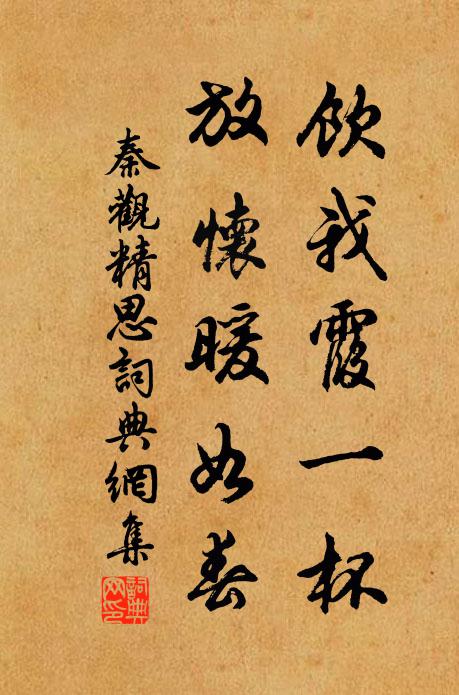 飲我霞一杯
放懷暖如春
秦觀精思詞典網集
詞典網印